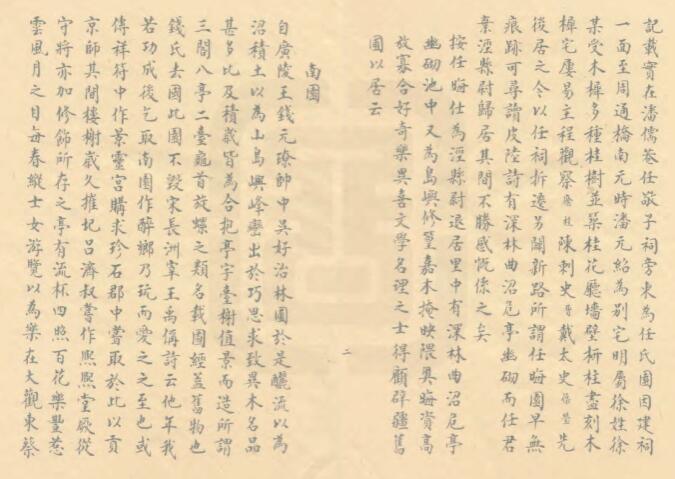 記載實在潘儒巷任敬子祠旁東為任氏園因建祠
一面至周通橋南元時潘元紹為別宅明屬徐姓徐
某受木樨多種桂樹並築桂花廳墻壁枅柱盡刻木
樨宅屢易主程觀察陳刺史戴太史先
後居之今以任祠拆遷另闢新路所謂任晦園早無
痕跡可尋讀皮陸詩有深林曲沼危亭幽砌而任君
棄涇縣尉歸居其間不勝感慨係之矣
按任晦仕為涇縣尉退居里中有深林曲沼危亭
幽砌池中又為島嶼修篁嘉木掩映隈奧晦資高
放寡合好奇樂異喜文學名理之士得顧辟疆舊
園以居云
二
南園
自廣陵王錢元璙帥中吳好治林圃於是釃流以為
沼積土以為山島嶼峰巒出於巧思求致異木名品
甚多比及積歲皆為合抱亭宇臺榭值景而造所謂
三閣八亭二臺龜首旋螺之類名載圖經蓋舊物也
錢氏去國此園不毀宋長洲宰王禹偁詩云他年我
若功成後乞取南園作醉鄉乃玩而愛之之至也或
傳祥符中作景靈宮購求珍石郡中嘗取於此以貢
京師其間樓榭歲久摧圮呂濟叔嘗作熙熙堂厥從
守將亦加修飾所存之亭有流杯四照百花樂豐惹
雲風月之目每春縱士女游覽以為樂在大觀東蔡